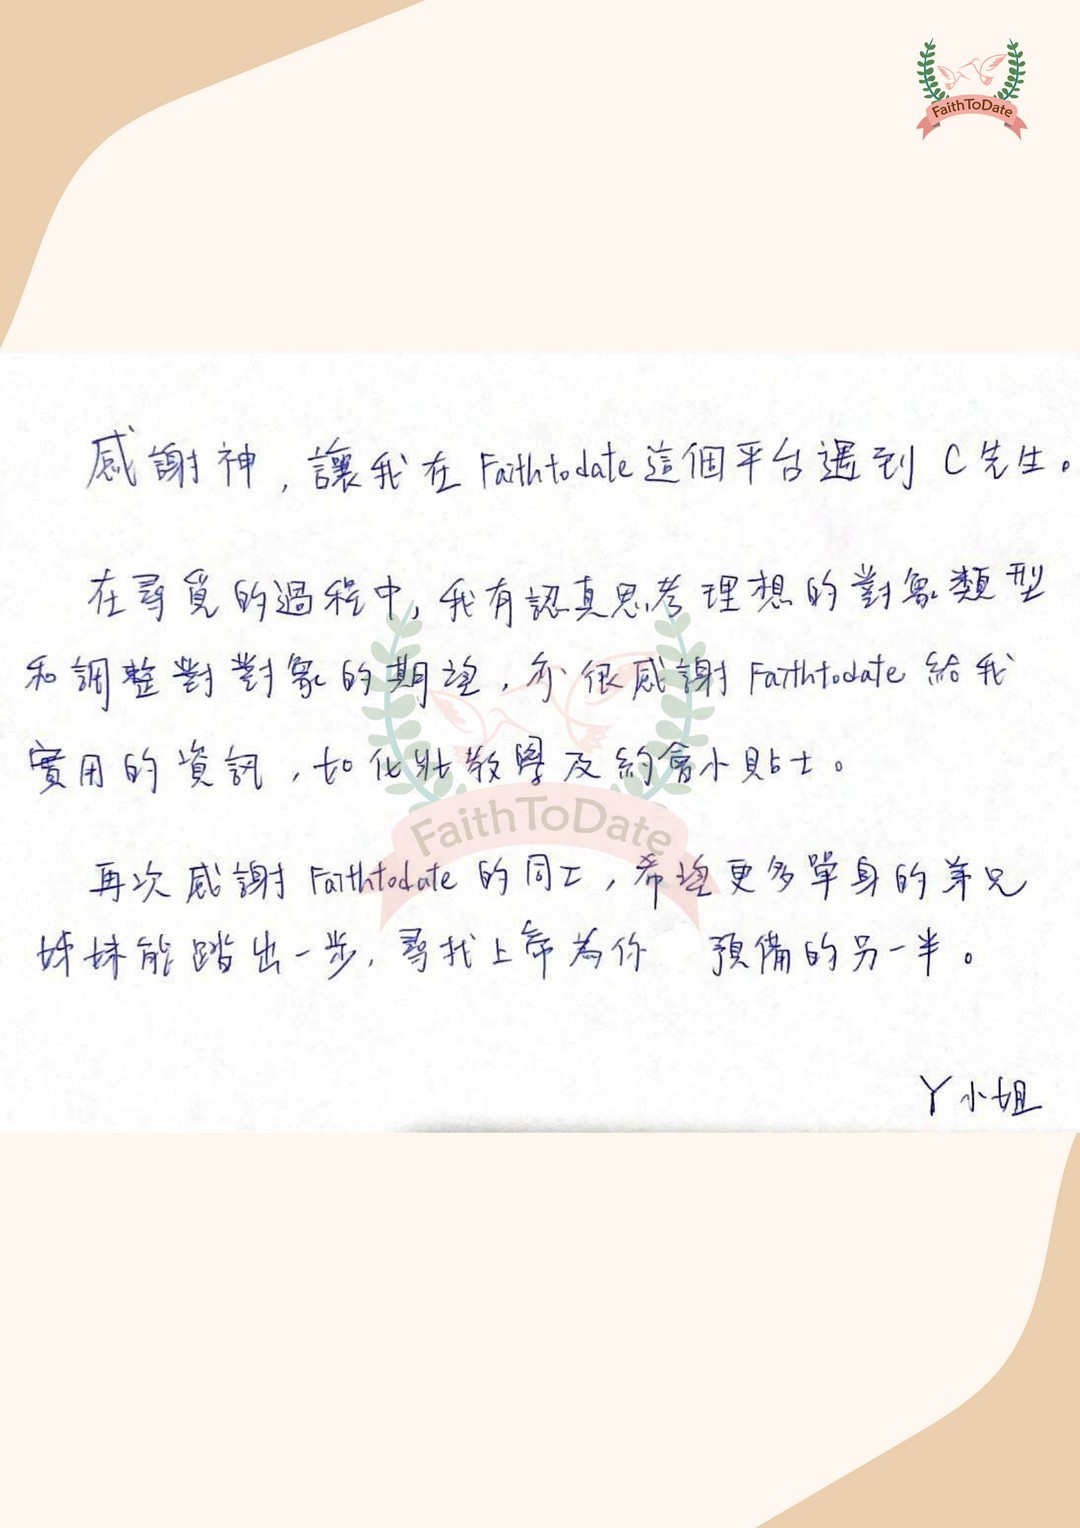 FaithToDate
感謝神，讓我在 Faithtodate 這個平台遇到 C先生。
在尋覓的過程中，我有認真思考理想的對象類型
和調整對對象的期望，亦很感謝 Faithtodate 給我
實用的資訊，如化妝教學及約會小貼士。
FaithToDate
再次感謝 Faithtodate 的同工，希望更多單身的弟兄
姊妹能踏出一步，尋找上帝為你 預備的另一半。
Y小姐